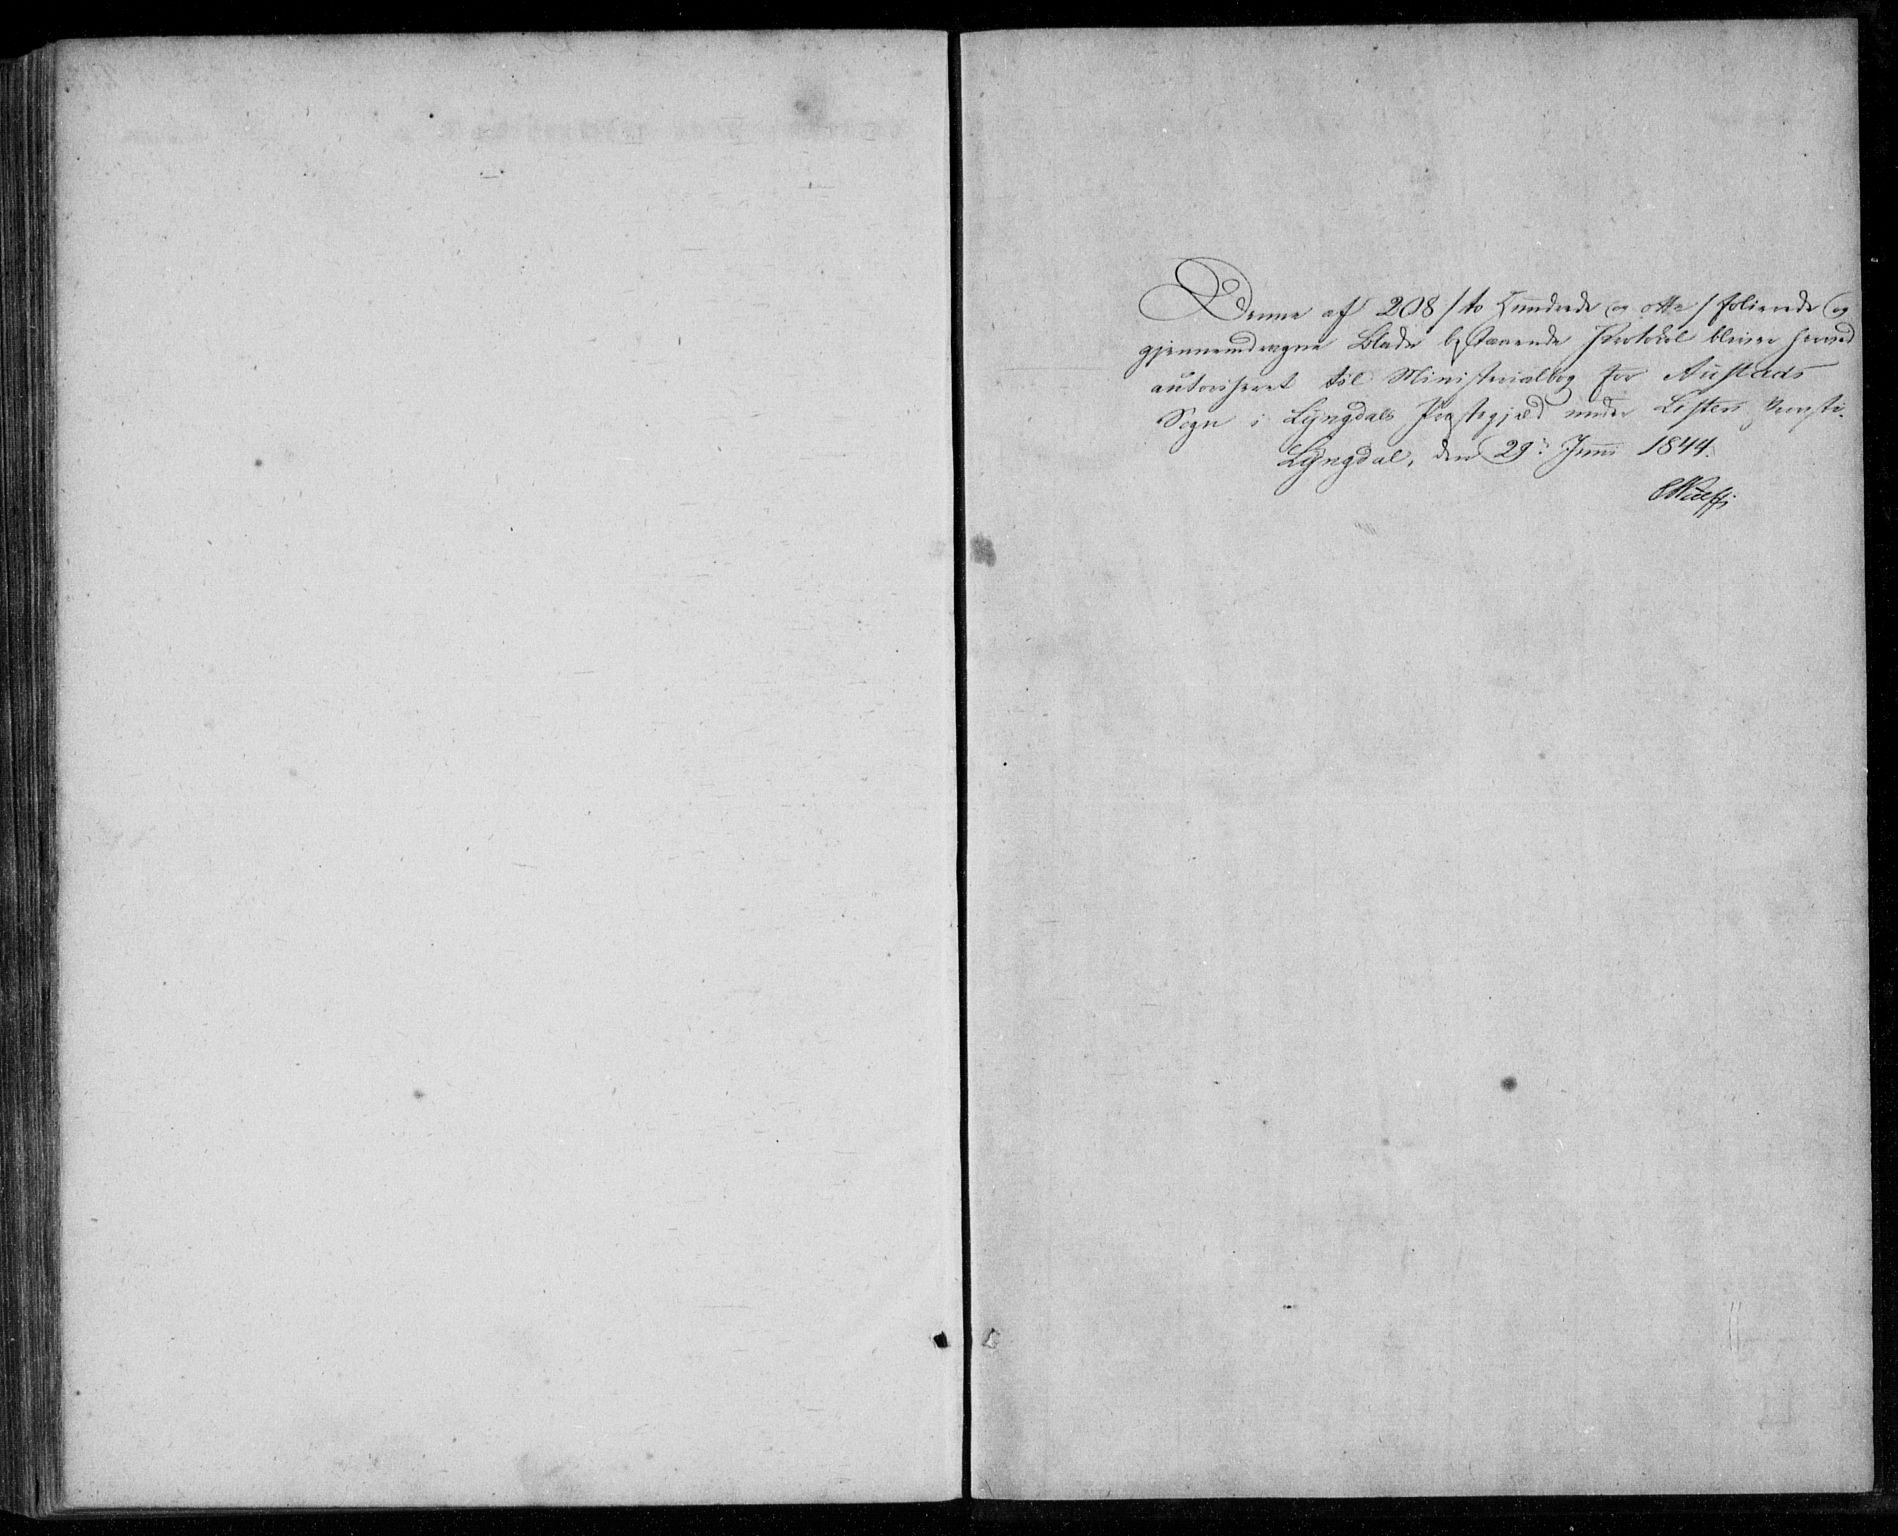 Denne af 208 / to Hundrede og otte / folierede og
gjennemdragne Blade bestaaende Protokol bliver herved
autoriseret til Ministerialbog for Austads
Sogn i Lyngdals Præstegjæld under Listers Provsti.
Lyngdal, den 29. Juni 1844.